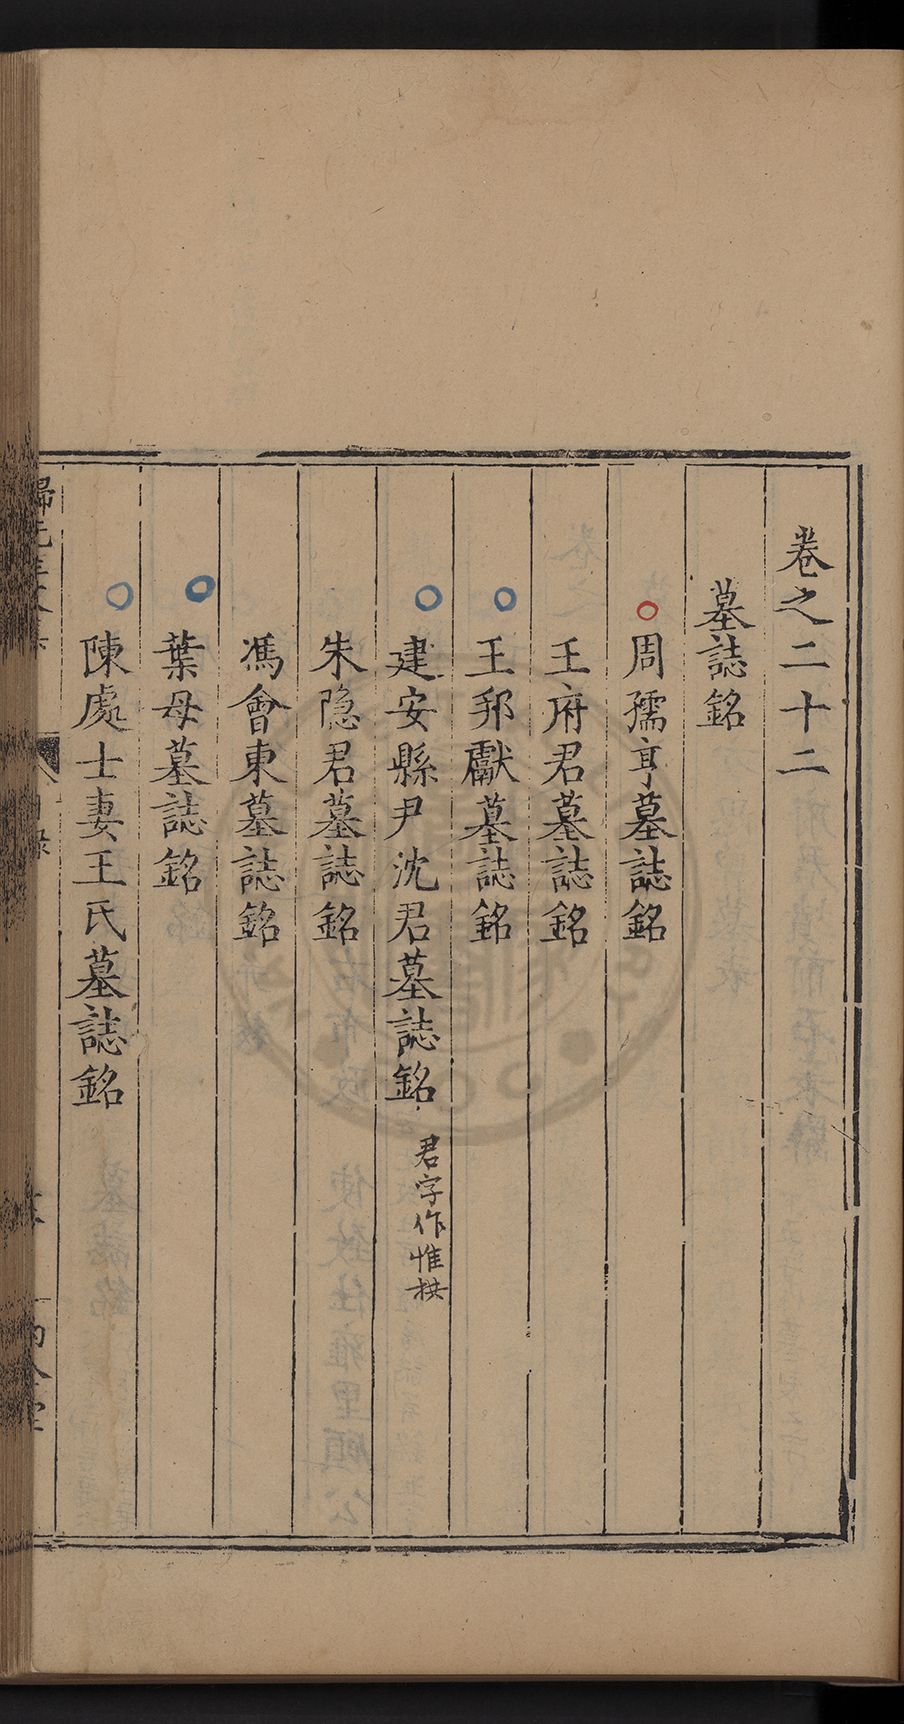 卷之二十二
墓誌銘
周孺亨墓誌銘
王府君墓誌銘
王邦獻墓誌銘
建安縣尹沈君墓誌銘 君字作惟拱
朱隐君墓誌銘
馮會東墓誌銘
葉母墓誌銘
陳處士妻王氏墓誌銘